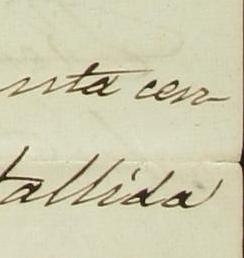 nta cen-
tallida